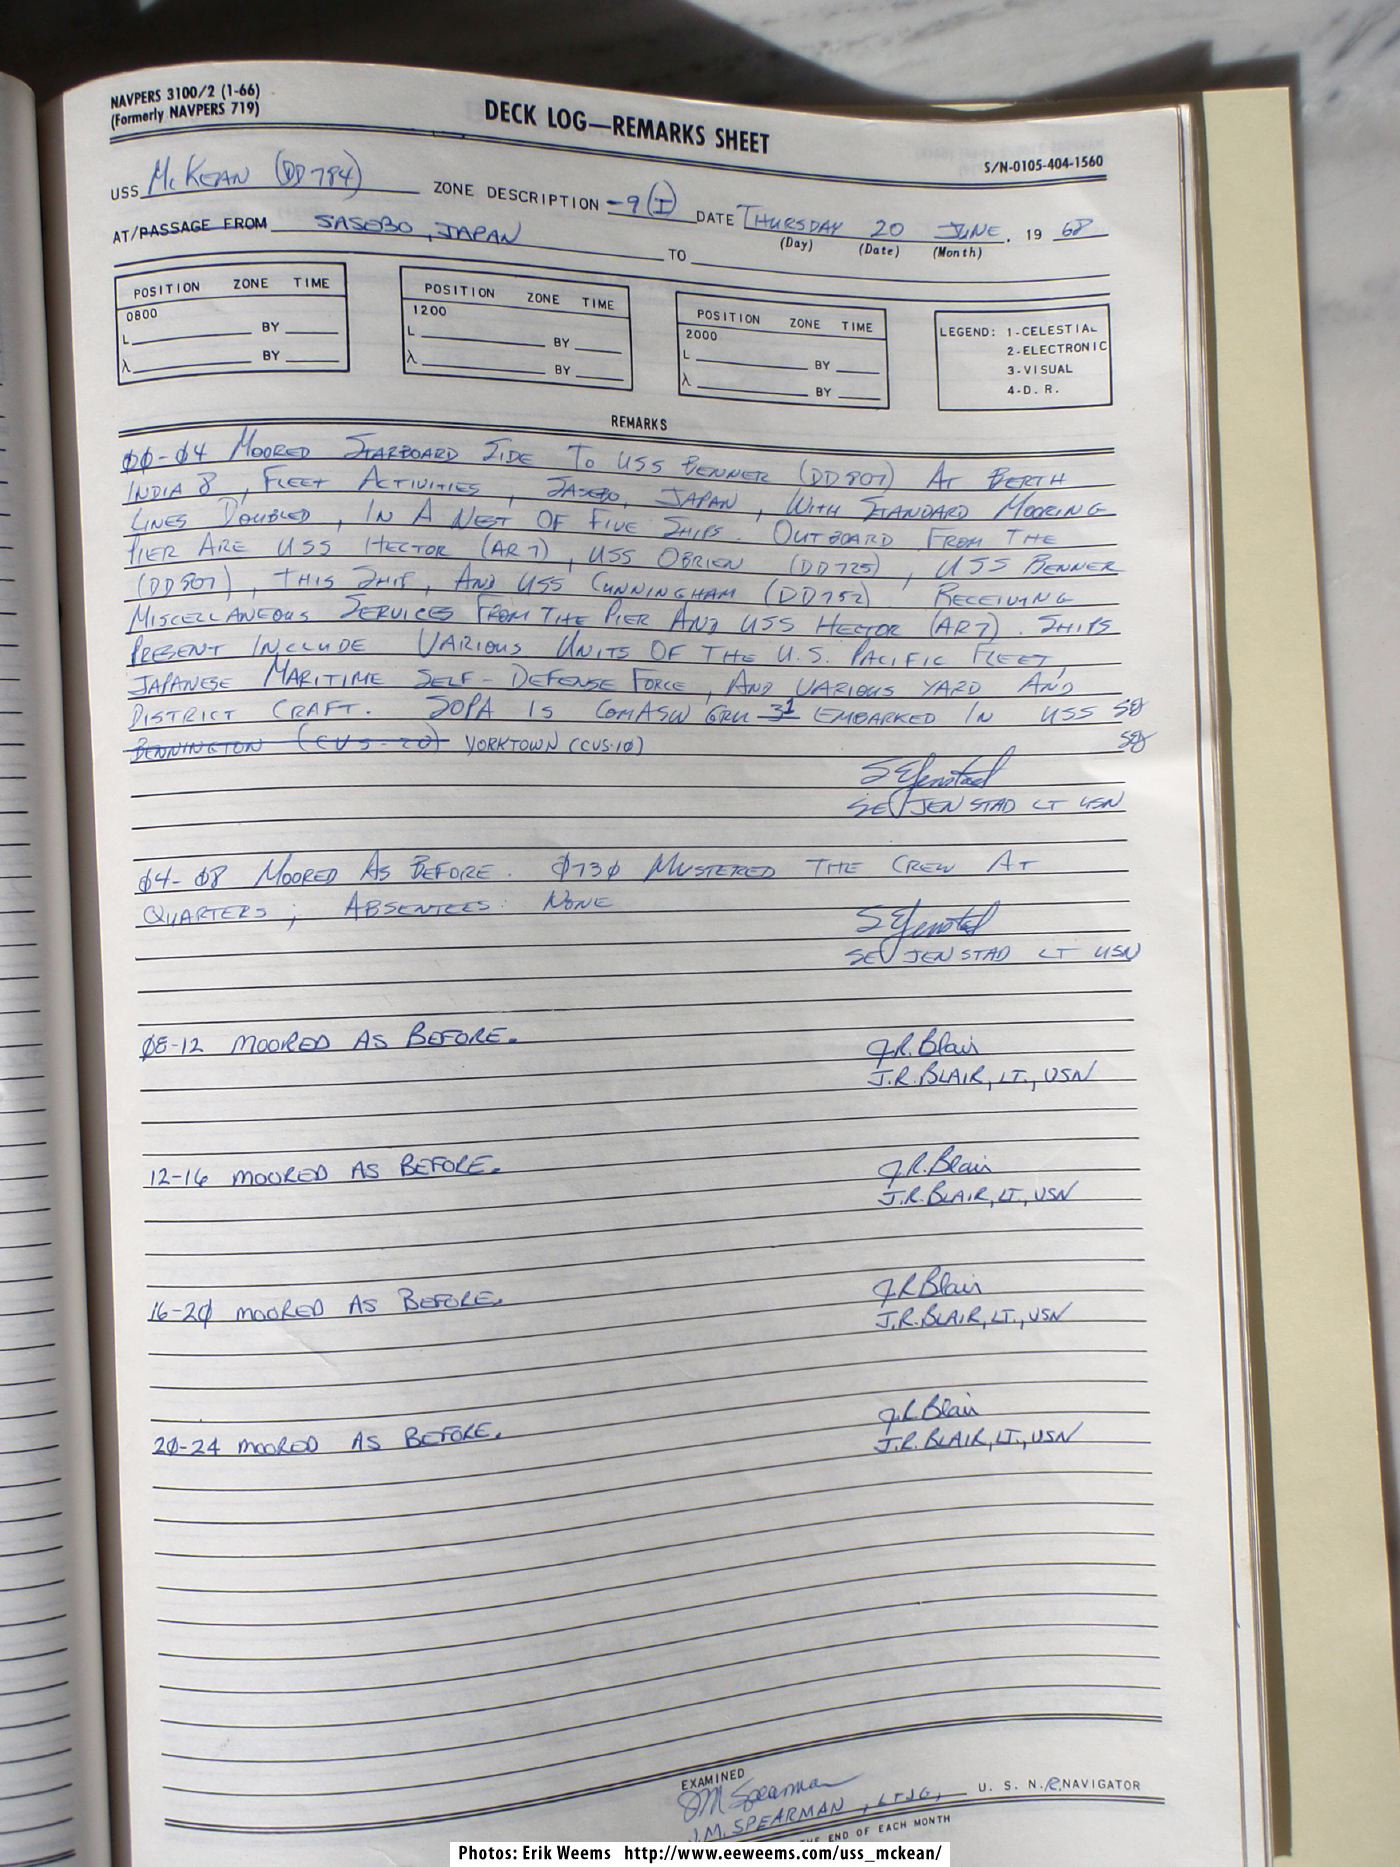 NAVPERS 3100/2 (1-66)
(Formerly NAVPERS 719)
DECK LOG—REMARKS SHEET
S/N-0105-404-1560
USS McKEAN (DD784) ZONE DESCRIPTION -9(I) DATE THURSDAY 20 JUNE, 19 68
(Day) (Date) (Month)
AT/PASSAGE FROM SASEBO, JAPAN TO
POSITION ZONE TIME
0800
L BY
λ BY
POSITION ZONE TIME
1200
L BY
λ BY
POSITION ZONE TIME
2000
L BY
λ BY
LEGEND: 1-CELESTIAL
2-ELECTRONIC
3-VISUAL
4-D. R.
REMARKS
00-04 MOORED STARBOARD SIDE TO USS BENNER (DD807) AT BERTH
INDIA 8, FLEET ACTIVITIES, SASEBO, JAPAN, WITH STANDARD MOORING
LINES DOUBLED, IN A NEST OF FIVE SHIPS. OUTBOARD FROM THE
PIER ARE USS HECTOR (AR7), USS OBRIEN (DD725), USS BENNER
(DD807), THIS SHIP, AND USS CUNNINGHAM (DD752) RECEIVING
MISCELLANEOUS SERVICES FROM THE PIER AND USS HECTOR (AR7). SHIPS
PRESENT INCLUDE VARIOUS UNITS OF THE U.S. PACIFIC FLEET,
JAPANESE MARITIME SELF-DEFENSE FORCE, AND VARIOUS YARD AND
DISTRICT CRAFT. SOPA IS COMASWGRU 31 EMBARKED IN USS SEJ
BENNINGTON (CVS-20) YORKTOWN (CVS-10) SEJ
SEJenstad
SEJ JENSTAD LT USN
04-08 MOORED AS BEFORE. 0730 MUSTERED THE CREW AT
QUARTERS; ABSENTEES: NONE
SEJenstad
SEJ JENSTAD LT USN
08-12 MOORED AS BEFORE.
J.R. Blair
J.R. BLAIR, LT., USN
12-16 MOORED AS BEFORE.
J.R. Blair
J.R. BLAIR, LT., USN
16-20 MOORED AS BEFORE.
J.R. Blair
J.R. BLAIR, LT., USN
20-24 MOORED AS BEFORE.
J.R. Blair
J.R. BLAIR, LT., USN
EXAMINED
JM Spearman
J.M. SPEARMAN, LTJG, U. S. N.R. NAVIGATOR
THE END OF EACH MONTH
Photos: Erik Weems http://www.eeweems.com/uss_mckean/